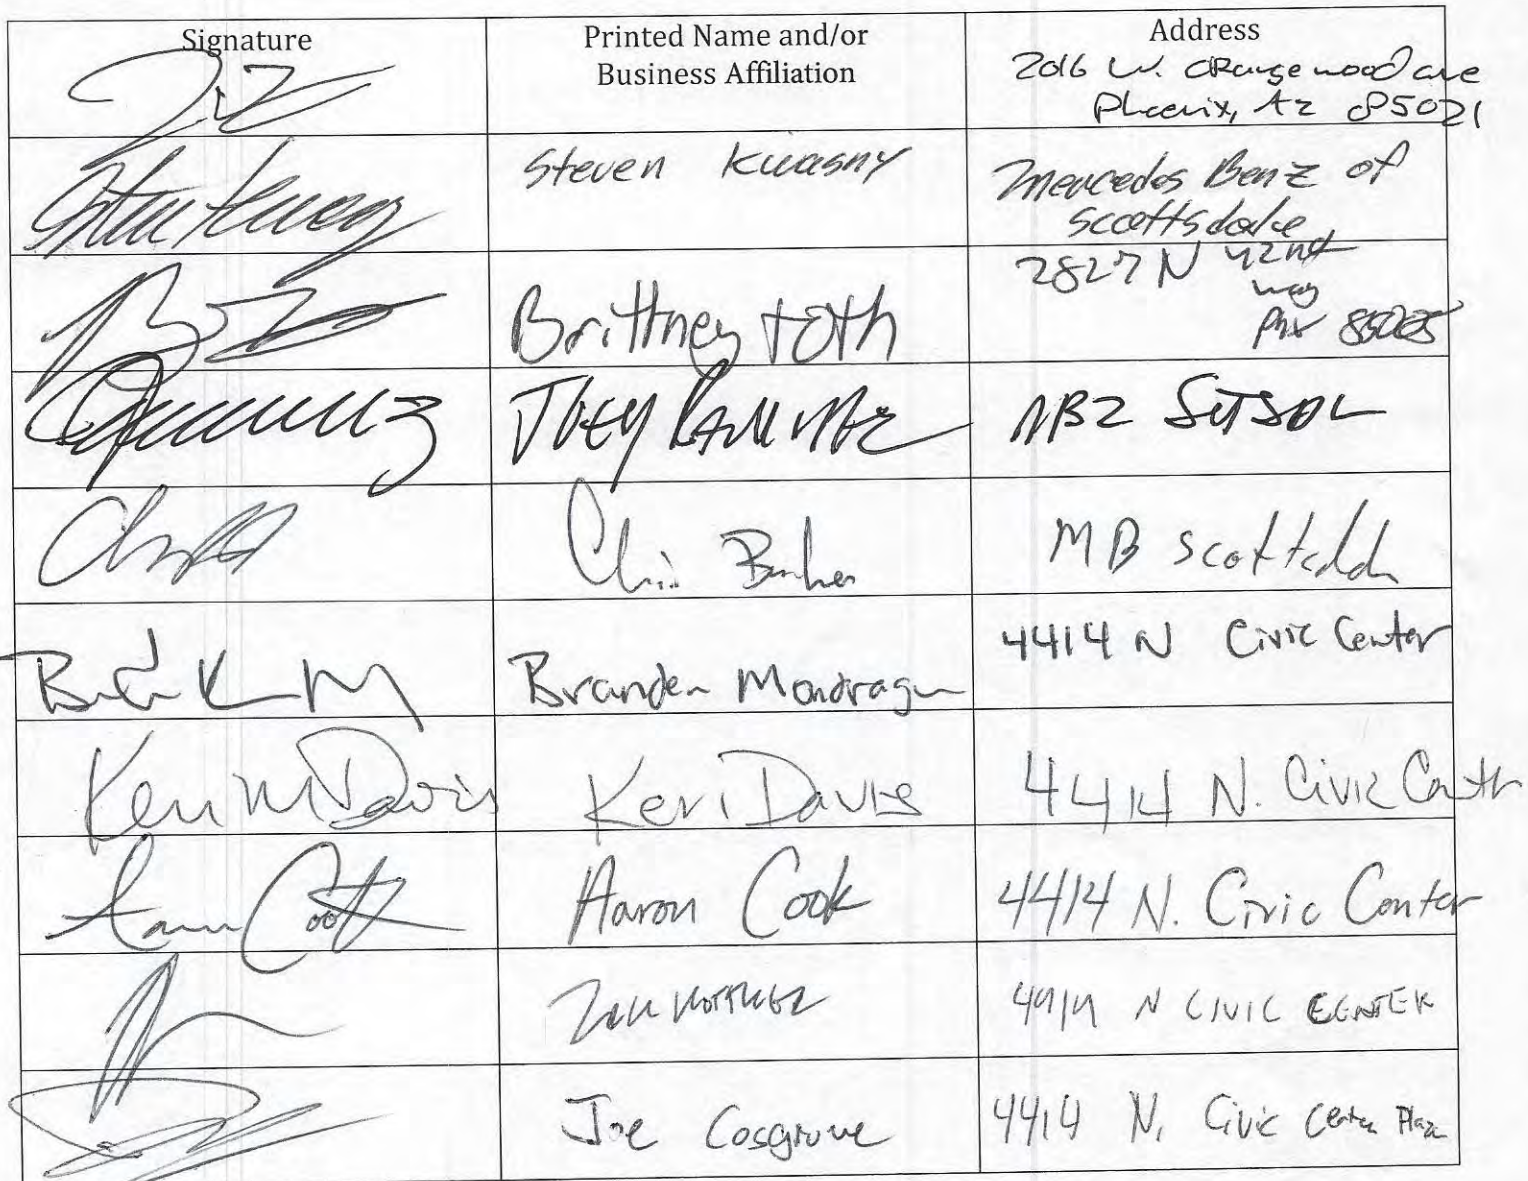 Signature
Printed Name and/or
Business Affiliation
Address
2016 W. Orangewood ave
Phoenix, Az 85021
Steven Kwasny
Mercedes Benz of
Scottsdale
Brittney Toth
2827 N 42nd
way
Phx
Joey Ramirez
Chris
MB Scottsdale
Branden Mondragon
4414 N Civic Center
Keri M Davis
Keri Davis
4414 N. Civic Center
Aaron Cook
Aaron Cook
4414 N. Civic Center
4414 N CIVIC CENTER
Joe Cosgrove
4414 N. Civic Center Plaza